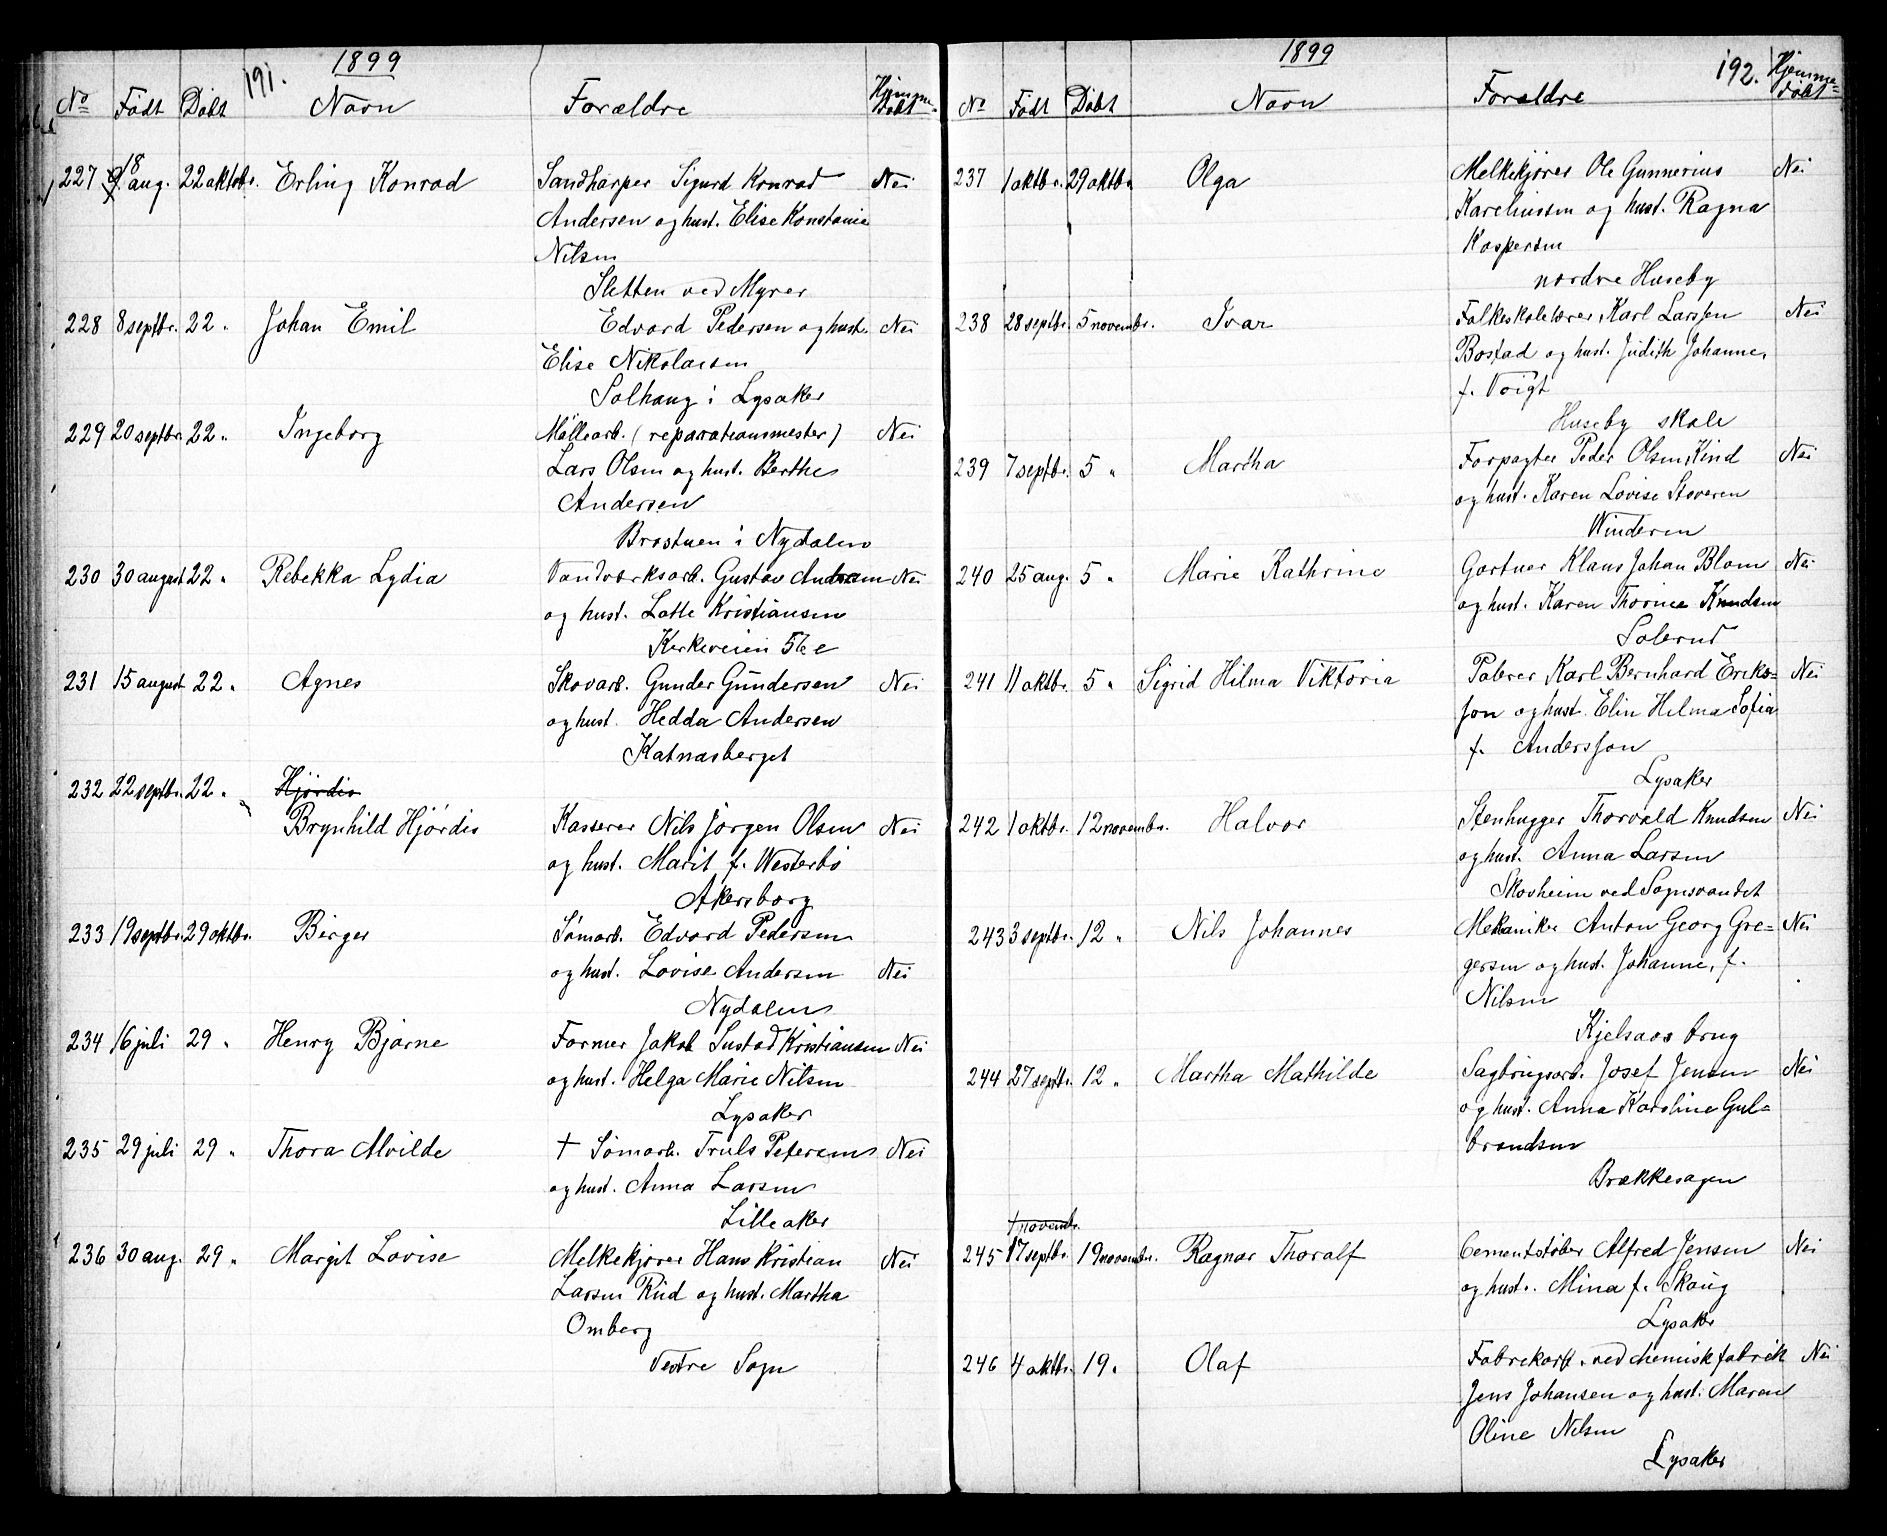 191.
1899
No Född Döbt Navn Forældre Hjemmedöbt
227 18 aug. 22 oktobr. Erling Konrad Sandharper Sigurd Konrad Nei
Andersen og hust. Elise Konstanse
Nilsen
Sletten ved Myrer
228 8 septbr. 22 " Johan Emil Edvard Pedersen og hust. Nei
Elise Nikolaisen
Solhaug i Lysaker
229 20 septbr. 22 " Ingeborg Möllearb. (reparationsmester) Nei
Lars Olsen og hust. Berthe
Andersen
Brostuen i Nydalen
230 30 august 22 " Rebekka Lydia Vandværksarb. Gustav Andersen Nei
og hust. Lotte Kristiansen
Kirkeveien 56 e
231 15 august 22 " Agnes Skovarb. Gunder Gundersen Nei
og hust. Hedda Andersen
Katnasberget
232 22 septbr. 22 " Hjördis
Brynhild Hjördis Kasserer Nils Jörgen Olsen Nei
og hust. Marit f. Westerbö
Akersborg
233 19 septbr. 29 oktbr. Birger Tömarb. Edvard Pedersen
og hust. Lovise Andersen Nei
Nydalen
234 16 juli 29 " Henry Bjarne Former Jakob Sustad Kristiansen Nei
og hust. Helga Marie Nilsen
Lysaker
235 29 juli 29 " Thora Alvilde † Tömarb. Truls Petersen Nei
og hust. Anna Larsen
Lilleaker
236 30 aug. 29 " Margit Lovise Melkekjörer Hans Kristian Nei
Larsen Rud og hust. Martha
Omberg
Vestre Sogn
1899
192.
No Född Döbt Navn Forældre Hjemmedöbt
237 1 oktbr. 29 oktbr. Olga Melkekjörer Ole Gunnerius Nei
Kareliussen og hust. Ragna
Kaspersen
nordre Huseby
238 28 septbr. 5 novembr. Ivar Folkeskolelærer Karl Larssen Nei
Bostad og hust. Judith Johanne,
f. Voigt
Huseby skole
239 7 septbr. 5 " Martha Forpagter Peder Olsen Kind Nei
og hust. Karen Lovise Stoveren
Winderen
240 25 aug. 5 " Marie Kathrine Gartner Klaus Johan Blom Nei
og hust. Karen Thorine Knudsen
Solerud
241 11 oktbr. 5 " Sigrid Hilma Viktoria Polerer Karl Bernhard Eriks- Nei
son og hust. Elin Hilma Sofia
f. Andersson
Lysaker
242 1 oktbr. 12 novembr. Halvor Stenhugger Thorvald Knudsen Nei
og hust. Anna Larsen
Skovheim ved Sognsvandet
243 3 septbr. 12 " Nils Johannes Mekaniker Anton Georg Gre- Nei
gersen og hust. Johanne, f.
Nilsen
Kjelsaas brug
244 27 septbr. 12 " Martha Mathilde Sagbrugsarb. Josef Jensen Nei
og hust. Anna Karoline Gul-
brandsen
Brækkesagen
novembr.
245 17 septbr. 19 novembr. Ragnar Thoralf Cementstøber Alfred Jensen Nei
og hust. Mina f. Skoug
Lysaker
246 4 oktbr. 19 " Olaf Fabrikarb. ved chemisk fabrik Nei
Jens Johansen og hust. Maren
Oline Nilsen
Lysaker